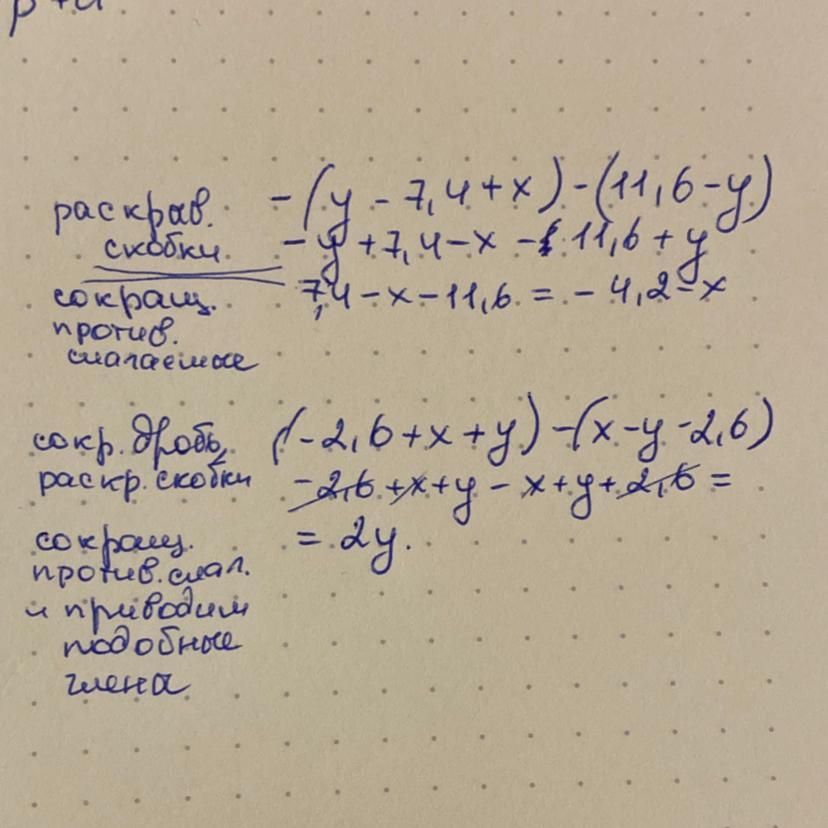 раскрав. -(y - 7,4 + x) - (11,6 - y)
скобки. - y + 7,4 - x - 11,6 + y
сокращ. 7,4 - x - 11,6 = - 4,2 - x
против.
слагаемые
сокр. дробь, (-2,6 + x + y) - (x - y - 2,6)
раскр. скобки -2,6 + x + y - x + y + 2,6 =
сокращ. = 2y.
против. слаг.
и приводим
подобные
члена